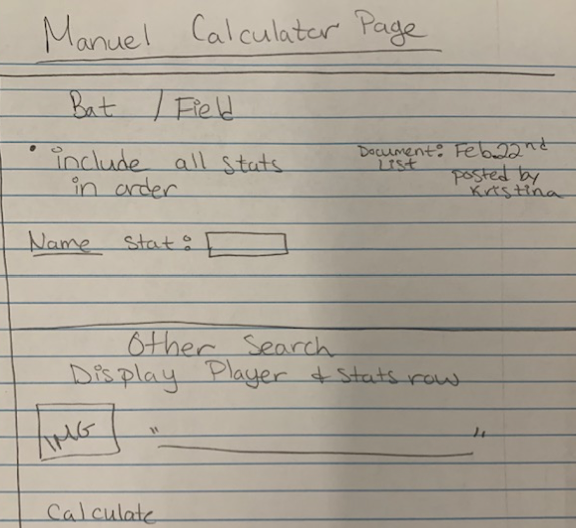 Manuel Calculator Page
Bat / Field
• include all stats
in order
Document: Feb.22nd
List
posted by
Kristina
Name Stat:
Other Search
Display Player & Stats row
IMG " "
Calculate